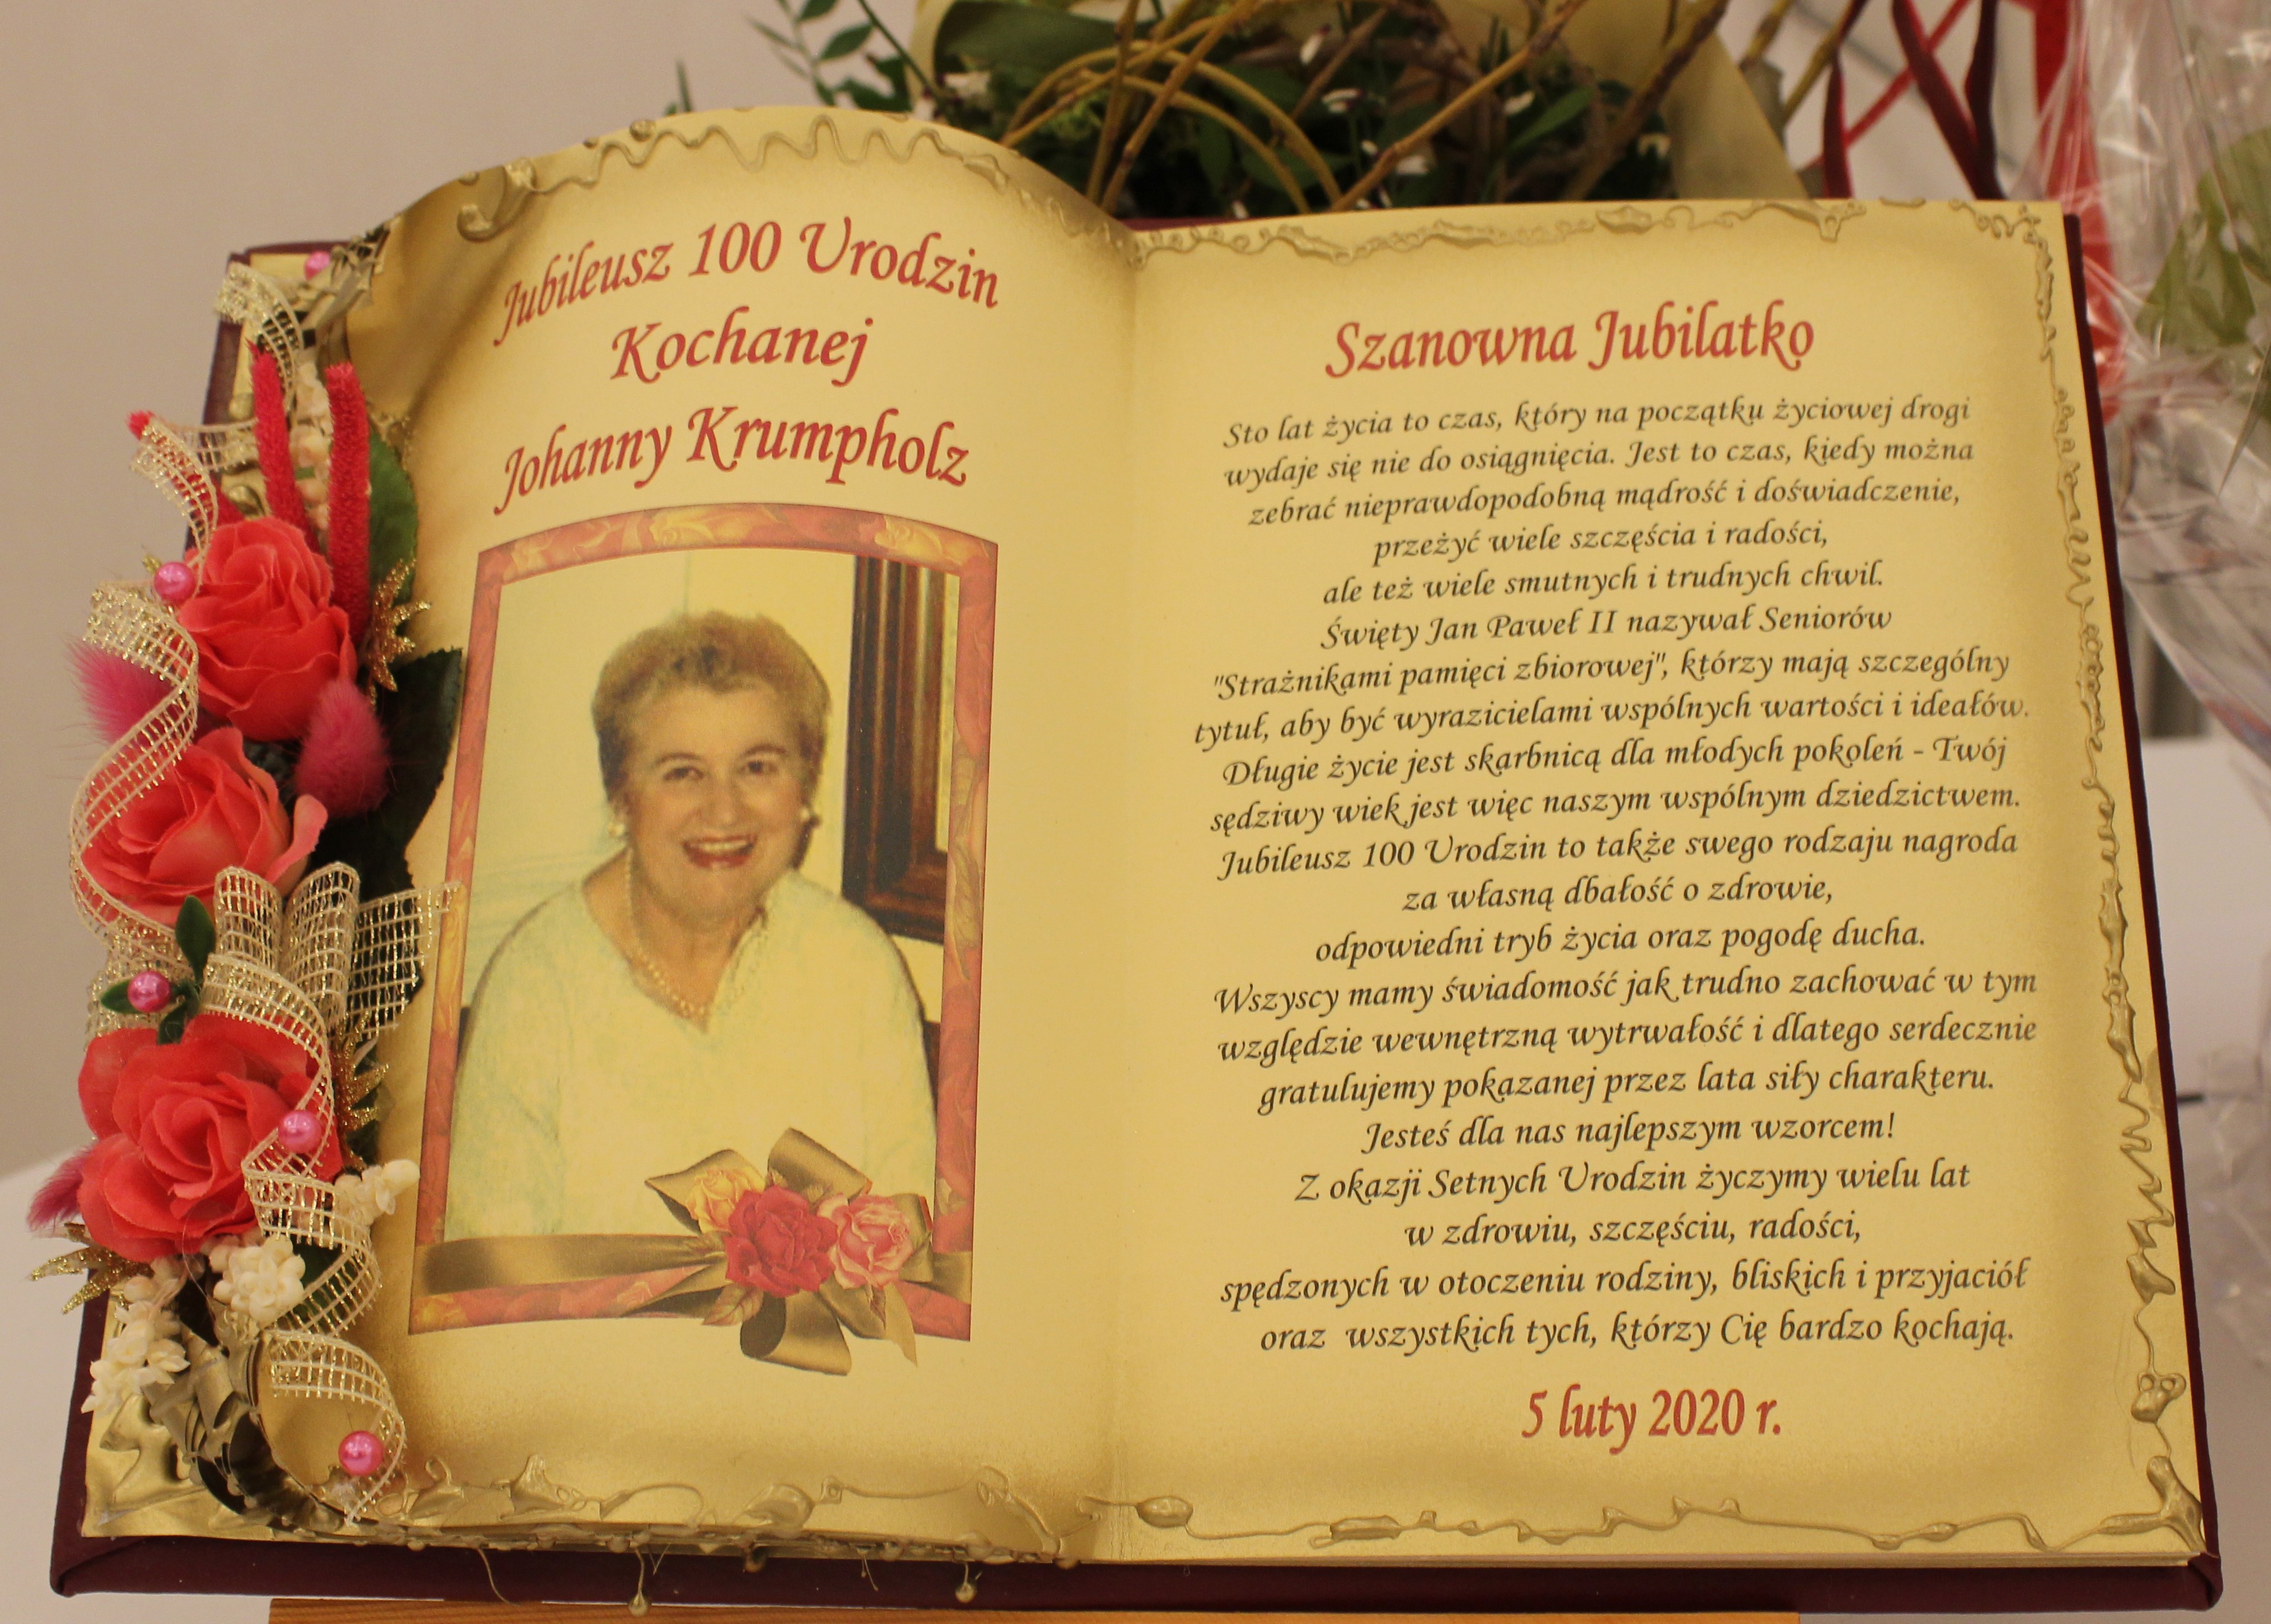 Jubileusz 100 Urodzin
Kochanej
Johanny Krumpholz
Szanowna Jubilatko
Sto lat życia to czas, który na początku życiowej drogi
wydaje się nie do osiągnięcia. Jest to czas, kiedy można
zebrać nieprawdopodobną mądrość i doświadczenie,
przeżyć wiele szczęścia i radości,
ale też wiele smutnych i trudnych chwil.
Święty Jan Paweł II nazywał Seniorów
"Strażnikami pamięci zbiorowej", którzy mają szczególny
tytuł, aby być wyrazicielami wspólnych wartości i ideałów.
Długie życie jest skarbnicą dla młodych pokoleń - Twój
sędziwy wiek jest więc naszym wspólnym dziedzictwem.
Jubileusz 100 Urodzin to także swego rodzaju nagroda
za własną dbałość o zdrowie,
odpowiedni tryb życia oraz pogodę ducha.
Wszyscy mamy świadomość jak trudno zachować w tym
względzie wewnętrzną wytrwałość i dlatego serdecznie
gratulujemy pokazanej przez lata siły charakteru.
Jesteś dla nas najlepszym wzorcem!
Z okazji Setnych Urodzin życzymy wielu lat
w zdrowiu, szczęściu, radości,
spędzonych w otoczeniu rodziny, bliskich i przyjaciół
oraz wszystkich tych, którzy Cię bardzo kochają.
5 luty 2020 r.